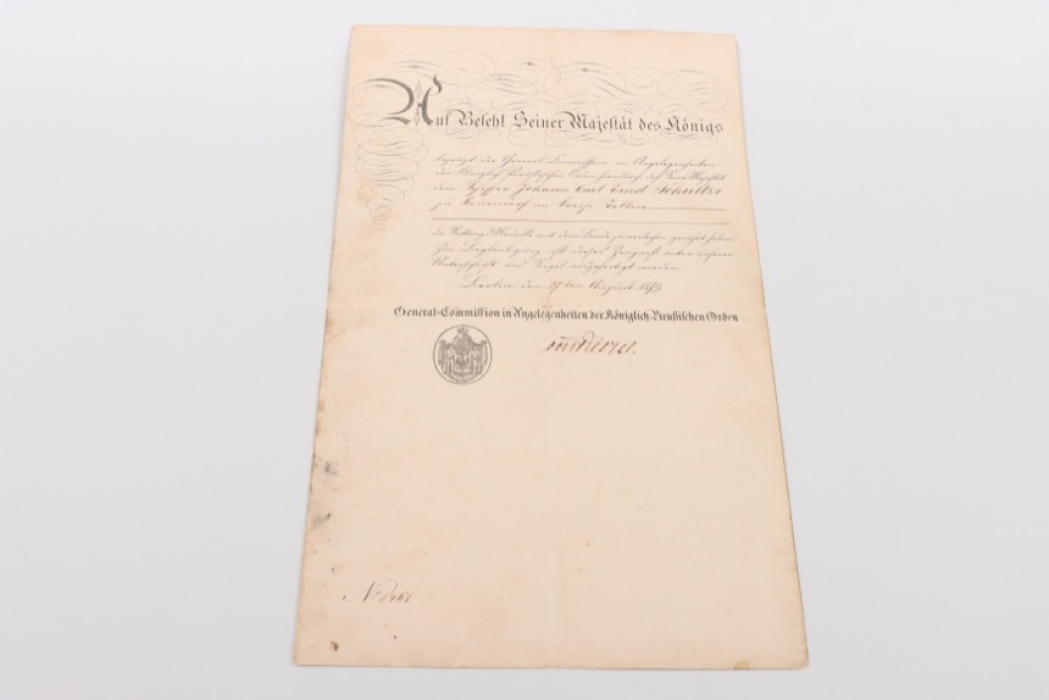 Auf Befehl Seiner Majestät des Königs
bezeugt die General-Commission in Angelegenheiten
der Königlich Preußischen Orden hierdurch, daß Seine Majestät
dem Schiffer Johann Carl Ernst Schultze
zu Neuendorf im Kreise Teltow
die Rettungs-Medaille mit dem Bande zu verleihen geruht haben.
Zur Beglaubigung ist dieses Zeugniß unter unserer
Unterschrift und Siegel ausgefertigt worden.
Berlin, den 27ten August
General-Commission in Angelegenheiten der Königlich Preußischen Orden